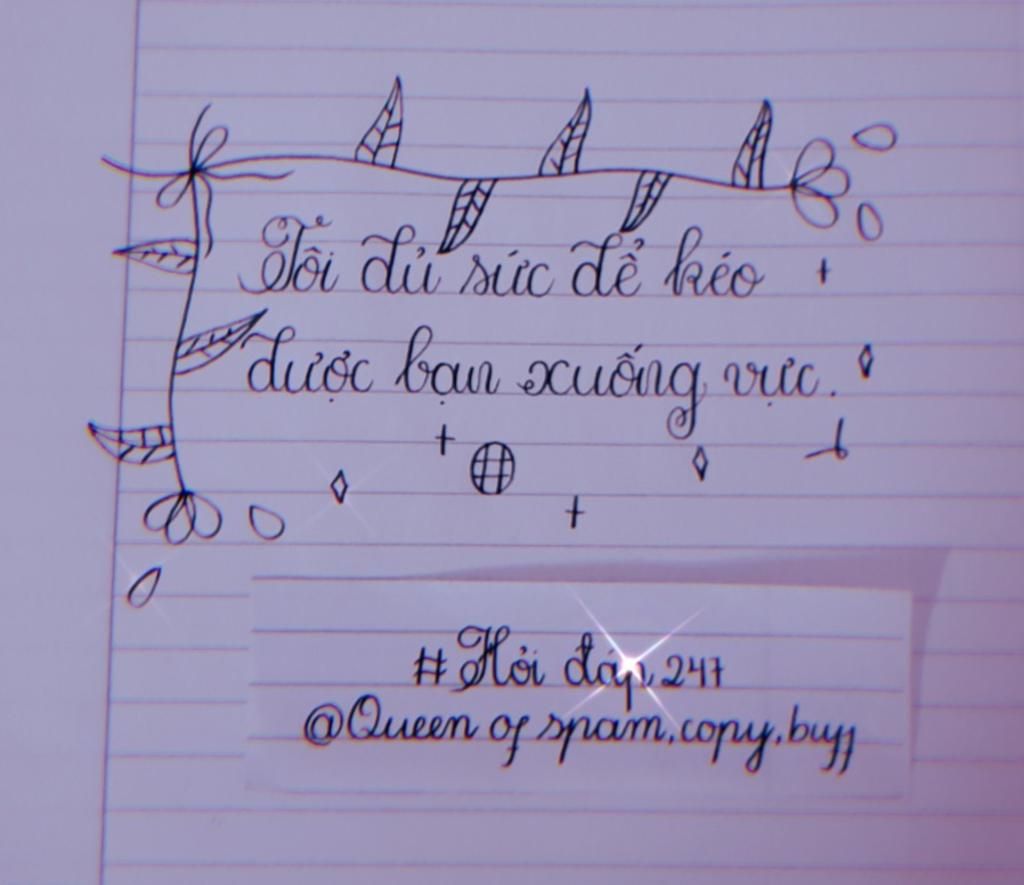 Tôi đủ sức để kéo
được bạn xuống vực.
#Hỏi đáp 247
@Queen of spam,copy,buff